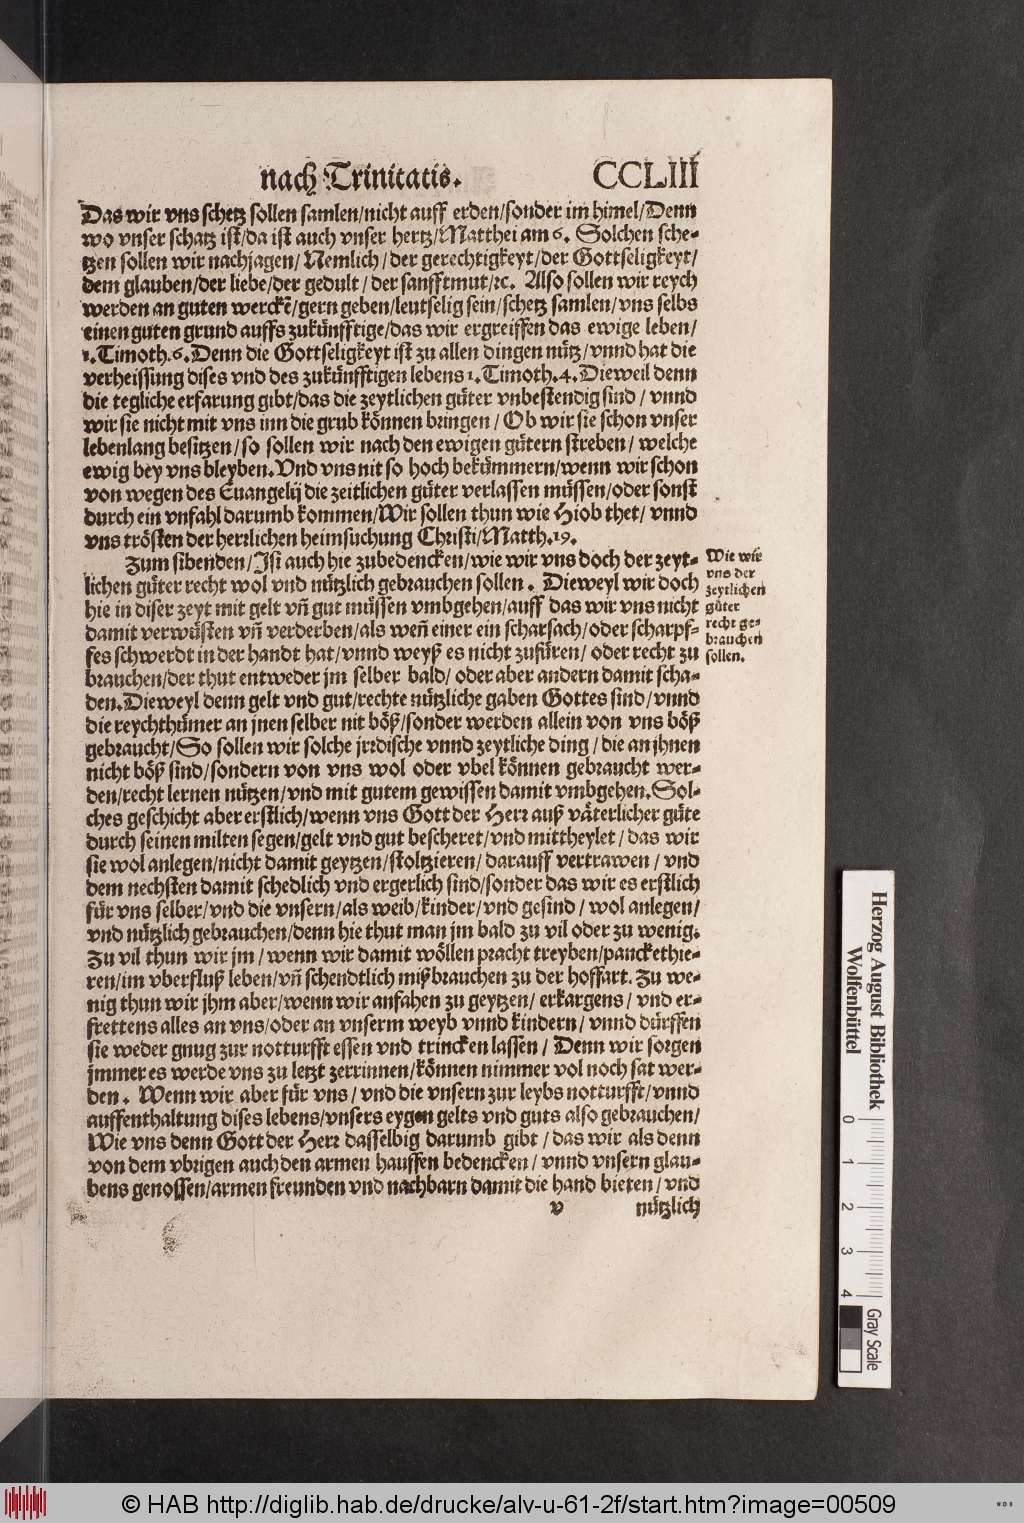 nach Trinitatis. CCLIII
Das wir vns schetz sollen samlen/nicht auff erden/sonder im himel/Denn
wo vnser schatz ist/da ist auch vnser hertz/Matthei am 6. Solchen sche-
tzen sollen wir nachjagen/Nemlich/der gerechtigkeyt/der Gottseligkeyt/
dem glauben/der liebe/der gedult/der sanfftmut/ꝛc. Also sollen wir reych
werden an guten werckẽ/gern geben/leutselig sein/schetz samlen/vns selbs
einen guten grund auffs zukünfftige/das wir ergreiffen das ewige leben/
1. Timoth. 6. Denn die Gottseligkeyt ist zu allen dingen nütz/vnnd hat die
verheissung dises vnd des zukünfftigen lebens 1. Timoth. 4. Dieweil denn
die tegliche erfarung gibt/das die zeytlichen güter vnbestendig sind/vnnd
wir sie nicht mit vns inn die grub können bringen/Ob wir sie schon vnser
lebenlang besitzen/so sollen wir nach den ewigen gütern streben/welche
ewig bey vns bleyben. Vnd vns nit so hoch bekümmern/wenn wir schon
von wegen des Euangelij die zeitlichen güter verlassen müssen/oder sonst
durch ein vnfahl darumb kommen/Wir sollen thun wie Hiob thet/vnnd
vns trösten der herrlichen heimsuchung Christi/Matth. 19.
Zum sibenden/Ist auch hie zubedencken/wie wir vns doch der zeyt-
lichen güter recht wol vnd nützlich gebrauchen sollen. Dieweyl wir doch
hie in diser zeyt mit gelt vñ gut müssen vmbgehen/auff das wir vns nicht
damit verwüsten vñ verderben/als weñ einer ein scharsach/oder scharpf-
fes schwerdt in der handt hat/vnnd weyß es nicht zufüren/oder recht zu
brauchen/der thut entweder jm selber bald/oder aber andern damit scha-
den. Dieweyl denn gelt vnd gut/rechte nützliche gaben Gottes sind/vnnd
die reychthümer an jnen selber nit böß/sonder werden allein von vns böß
gebraucht/So sollen wir solche jrrdische vnnd zeytliche ding/die an jhnen
nicht böß sind/sondern von vns wol oder vbel können gebraucht wer-
den/recht lernen nützen/vnd mit gutem gewissen damit vmbgehen. Sol-
ches geschicht aber erstlich/wenn vns Gott der Herr auß väterlicher güte
durch seinen milten segen/gelt vnd gut bescheret/vnd mittheylet/das wir
sie wol anlegen/nicht damit geytzen/stoltzieren/darauff vertrawen/vnd
dem nechsten damit schedlich vnd ergerlich sind/sonder das wir es erstlich
für vns selber/vnd die vnsern/als weib/kinder/vnd gesind/wol anlegen/
vnd nützlich gebrauchen/denn hie thut man jm bald zu vil oder zu wenig.
Zu vil thun wir jm/wenn wir damit wöllen pracht treyben/panckethie-
ren/im vberfluß leben/vñ schendtlich mißbrauchen zu der hoffart. Zu we-
nig thun wir jhm aber/wenn wir anfahen zu geytzen/erkargens/vnd er-
frettens alles an vns/oder an vnserm weyb vnnd kindern/vnnd dürffen
sie weder gnug zur notturfft essen vnd trincken lassen/Denn wir sorgen
jmmer es werde vns zu letzt zerrinnen/können nimmer vol noch sat wer-
den. Wenn wir aber für vns/vnd die vnsern zur leybs notturfft/vnnd
auffenthaltung dises lebens/vnsers eygen gelts vnd guts also gebrauchen/
Wie vns denn Gott der Herr dasselbig darumb gibt/das wir als denn
von dem vbrigen auch den armen hauffen bedencken/vnnd vnsern glau-
bens genossen/armen freunden vnd nachbarn damit die hand bieten/vnd
v nützlich
Wie wir
vns der
zeytlichen
güter
recht ge-
brauchen
sollen.
Herzog August Bibliothek
Wolfenbüttel
0 1 2 3 4
Gray Scale
© HAB http://diglib.hab.de/drucke/alv-u-61-2f/start.htm?image=00509
WDB